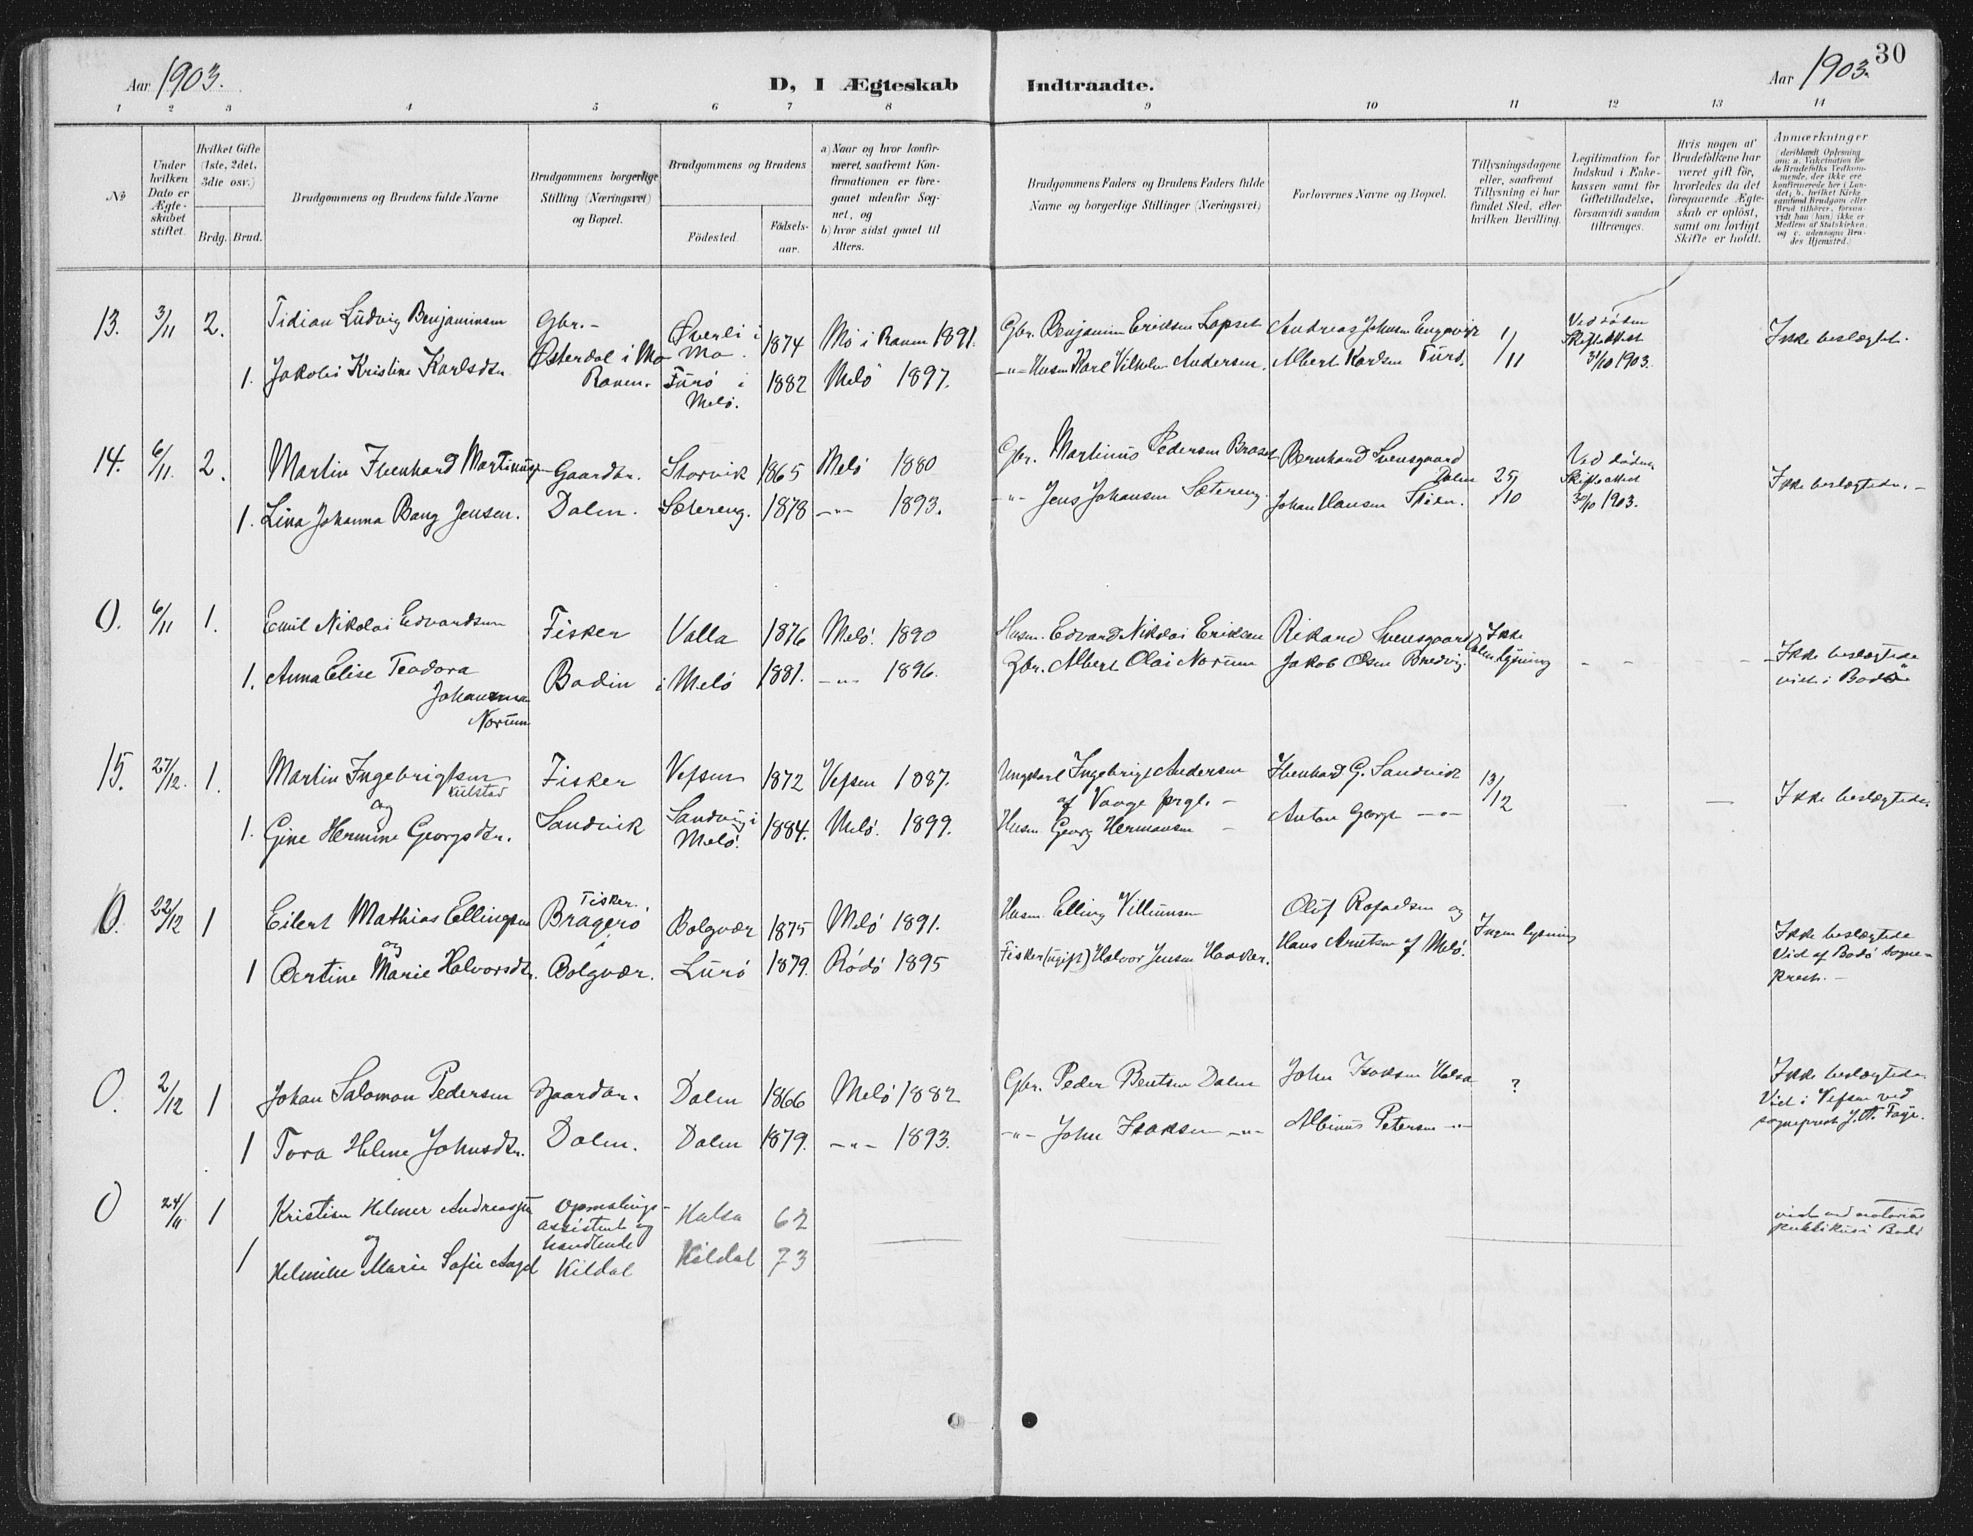 Aar 1903.
D, I Ægteskab Indtraadte.
Aar 1903.
30
1 2 3 4 5 6 7 8 9 10 11 12 13 14
No
Under hvilken Dato er Ægteskabet stiftet.
Hvilket Gifte (1ste, 2det, 3die osv.)
Brdg. Brud.
Brudgommens og Brudens fulde Navne
Brudgommens borgerlige Stilling (Næringsvei) og Bopæl.
Brudgommens og Brudens
Fødested.
Fødselsaar.
a) Naar og hvor konfirmeret, saafremt Konfirmationen er foregaaet udenfor Sognet, og
b) hvor sidst gaaet til Alters.
Brudgommens Faders og Brudens Faders fulde Navne og borgerlige Stillinger (Næringsvei)
Forlovernes Navne og Bopæl.
Tillysningsdagene eller, saafremt Tillysning ei har fundet Sted, efter hvilken Bevilling.
Legitimation for Indskud i Enkekassen samt for Giftetilladelse, forsaavidt saadan tiltrænges.
Hvis nogen af Brudefolkene har været gift før, hvorledes da det foregaaende Ægteskab er opløst, samt om lovligt Skifte er holdt.
Anmærkninger (deriblandt Oplysning om: a. Vakcination for de Brudefolks Vedkommende, der ikke ere konfirmerede her i Landet; b. hvilket Kirkesamfund Brudgom eller Brud tilhører, forsaavidt han (hun) ikke er Medlem af Statskirken, og c. udensogns Brudes Hjemsted.)
13. 3/11 2. Tidian Ludvig Benjaminsen Gbr. - Øverli i Mo. 1874 Mo i Ranen 1891. Gbr. Benjamin Eriksen Lapset Andreas Johnsen Engavik 1/11 Ved døden Skifteattest 31/10 1903. Ikke beslægt.
1. Jakobi Kristine Karlsdtr. Østerdal i Mo Ranen. Furø i Melø. 1882 Melø 1897. -"- Husm Karl Vilhelm Andersen. Albert Karlsen Furø.
14. 6/11. 2. Martin Ibenhard Martinus Gaardbr. Storvik 1865 Melø 1880 Gbr. Martinus Pedersen Braset Bernhard Svensgaard Dalen 25/10 Ved døden Skifteattest 30/10 1903. Ikke beslægtede. -
1. Lina Johanna Bang Jensen. Dalen. Sætereng. 1878 -"- 1893. -"- Jens Johansen Sætereng. Johan Hansen Stien.
O. 6/11 1. Emil Nikolai Edvardsen Fisker Valla 1876 Melø. 1890 Husm. Edvard Nikolai Eriksen Rikard Svensgaard Dalen Ikke lysning - - - Ikke beslægtede viet i Bodø
1. Anna Elise Teodora Johanna Norum Bodin i Melø 1881. -"- 1896. Gbr. Albert Olai Norum Jakob Olsen Bredvig.
15. 27/12. 1. Martin Ingebrigtsen Kulstad Fisker Vefsen 1872 Vefsen 1887. Ungkarl Ingebrigt Andersen af Vaage prgl. - Ibenhard G. Sandvik 13/12 - - Ikke beslægtede
og
1. Gine Hermine Georgsdtr. Sandvik Sandvig i Melø. 1884. Melø. 1899. Husm. Georg Hermansen - Anton Georgs -"-
O. 22/12 1 Eilert Mathias Ellingsen Fisker. Bragerø Bolgvær 1875 Melø 1891. Husm. Elling Villumsen Oluf Rafaelsen og Ingen lysning Ikke beslægtede Vid af Bodø Sogneprest. -
og
1 Bertine Marie Halvorsdtr. i Bolgvær. Lurø 1879. Rødø 1895 Fisker (ugift) Halvor Jensen Haaker. Hans Arntsen af Melø.
O. 2/12 1 Johan Salomon Pedersen Gaardbr. Dalen 1866 Melø 1882 Gbr. Peder Bentsen Dalen John Isaksen Halsa ? Ikke beslægtede. Viet i Vefsen ved sogneprest J. A. Faye.
1 Tora Helene Johnsdtr. Dalen. Dalen 1879. -"- 1893. -"- John Isaksen -"- Albinus Petersen -"-
O 24/11 1 Kristian Helmer Andreassen Opmaalings- assistent og Halsa 62 viet ved notarius publikus i Bodø
og
1 Helmine Marie Sofie Angel handlende Kildal Kildal 73